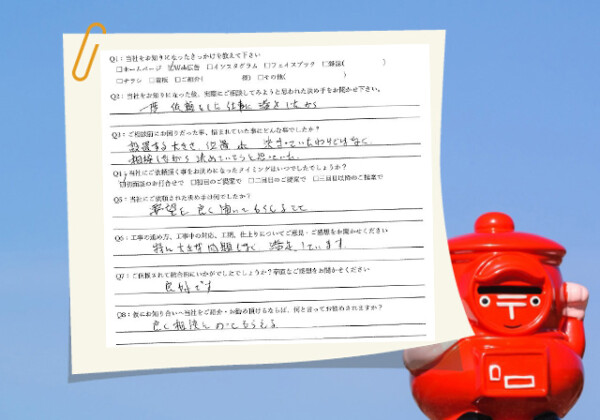 Q1：当社をお知りになったきっかけを教えて下さい
□ホームページ ☑Web広告 □インスタグラム □フェイスブック □雑誌( )
□チラシ □看板 □ご紹介( 様) □その他( )
Q2：当社をお知りになった後、実際にご相談してみようと思われた決め手をお聞かせ下さい。
一度 依頼をした仕事に満足したから
Q3：ご相談前にお困りだった事、悩まれていた事はどんな事でしたか？
設置する大きさ、位置 が 決まっていたわけではなく、
相談しながら決めていこうと思っていた。
Q4：当社にご依頼頂く事をお決めになったタイミングはいつでしたでしょうか？
☑初回面談のお打合せで □初回のご提案で □二回目のご提案で □三回目以降のご提案で
Q5：当社にご依頼された決め手は何でしたか？
希望を良く聞いてもらえること
Q6：工事の進め方、工事中の対応、工期、仕上りについてご意見・ご感想をお聞かせください
特に大きな問題もなく 満足しています。
Q7：ご依頼されて総合的にいかがでしたでしょうか？率直なご感想をお聞かせください
良好です
Q8：仮にお知り合いへ当社をご紹介・お勧め頂けるならば、何と言ってお勧めされますか？
良く相談にのってもらえる